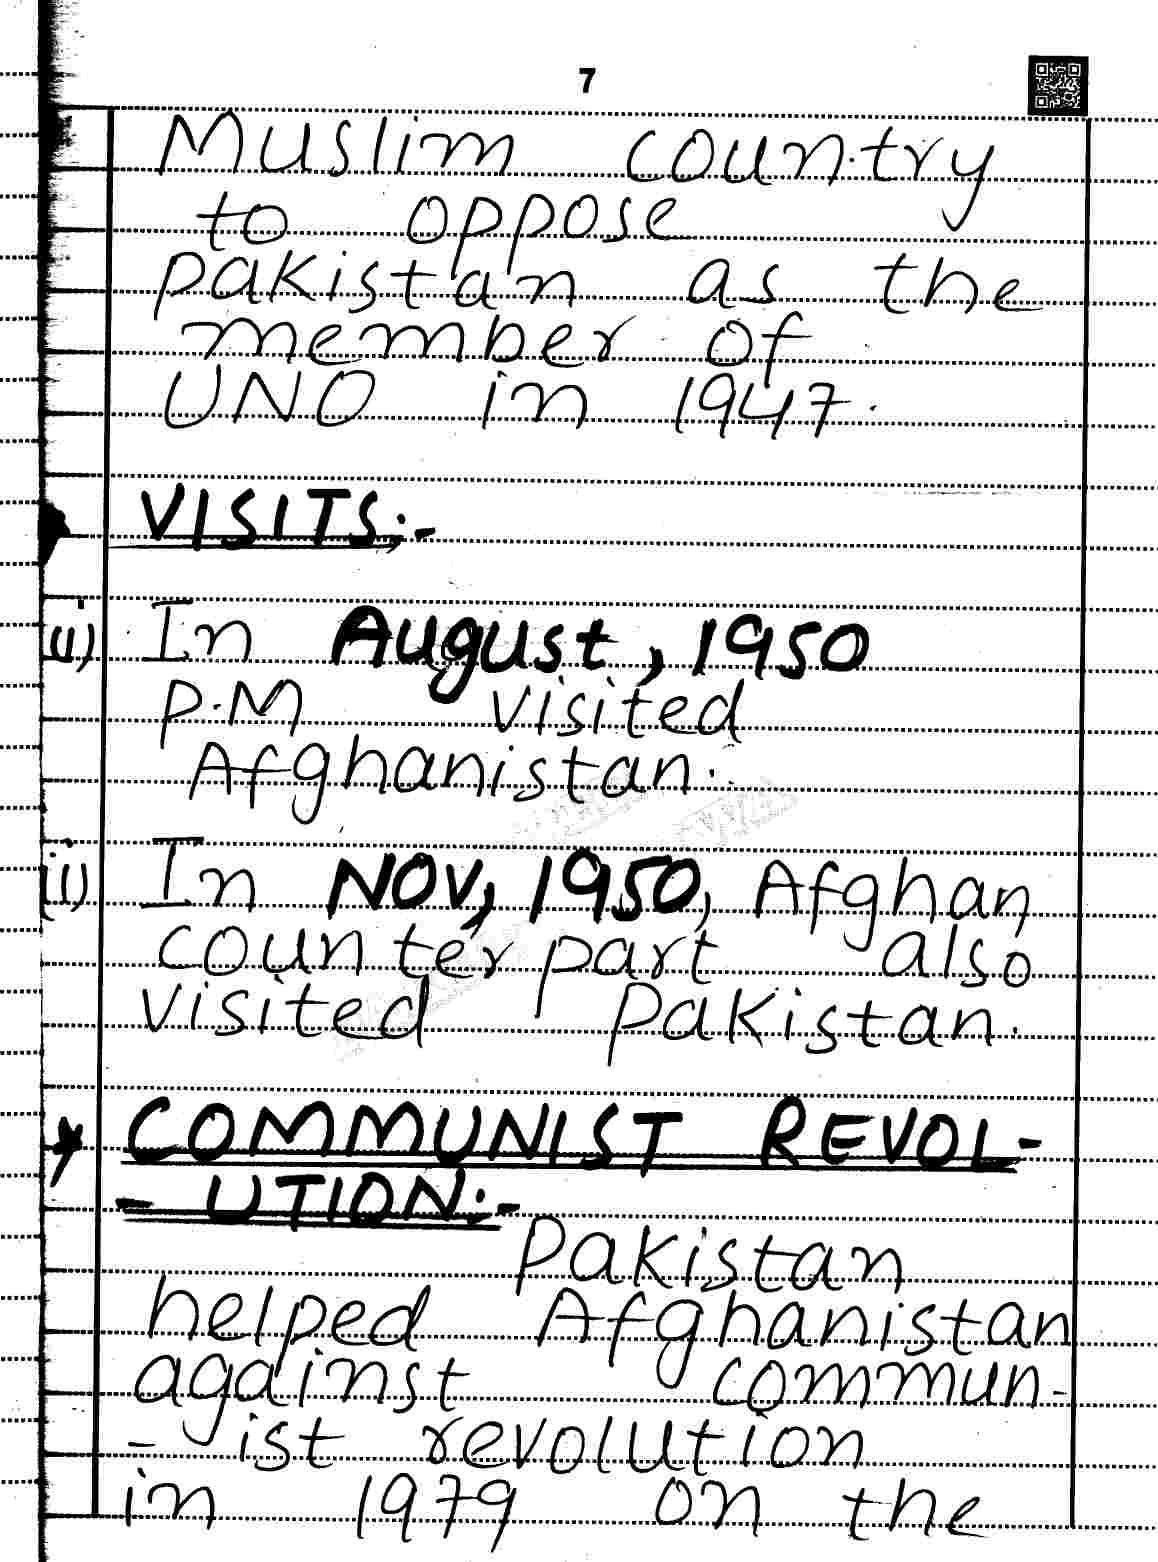 7
Muslim country
to oppose
Pakistan as the
member of
UNO in 1947.
VISITS:-
(i) In August, 1950
P.M visited
Afghanistan.
(ii) In NOV, 1950, Afghan
counterpart also
visited Pakistan.
COMMUNIST REVOL-
- UTION:-
Pakistan
helped Afghanistan
against commun-
- ist revolution
in 1979 on the